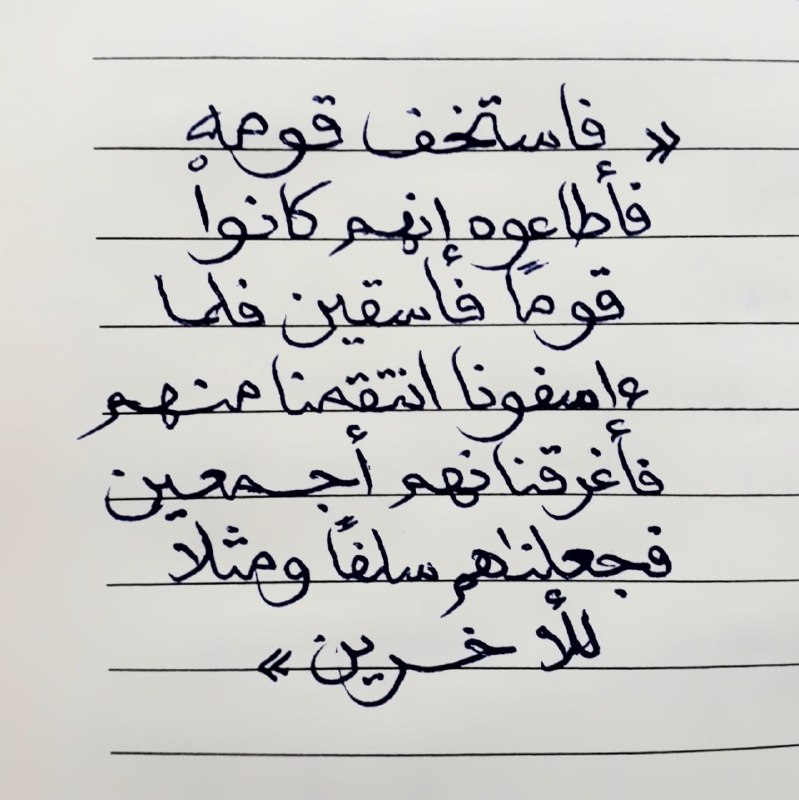 « فاستخف قومه
فأطاعوه إنهم كانواْ
قومًا فأسقين فلما
ءاسفونا انتقمنا منهم
فأغرقنانهم أجمعين
فجعلنٰهم سلفًا ومثلاً
للأخرين »